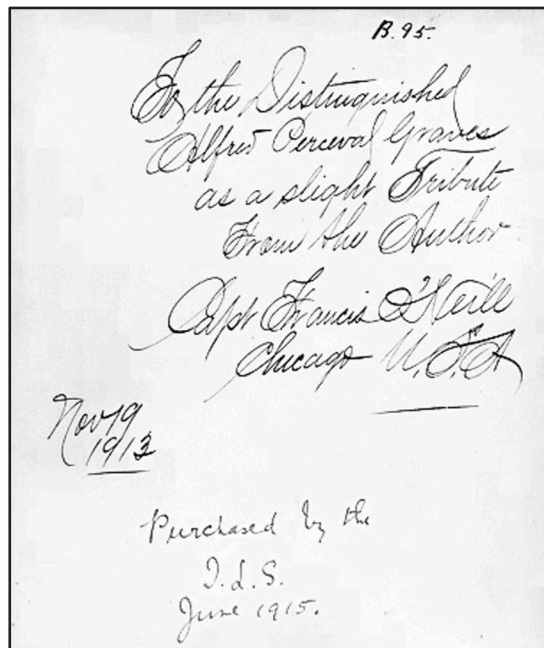 B.95.
To the Distinguished
Alfred Perceval Graves
as a slight Tribute
From the Author
Capt Francis O'Neill
Chicago U.S.A
Nov 19
1913
Purchased by the
I.L.S.
June 1915.